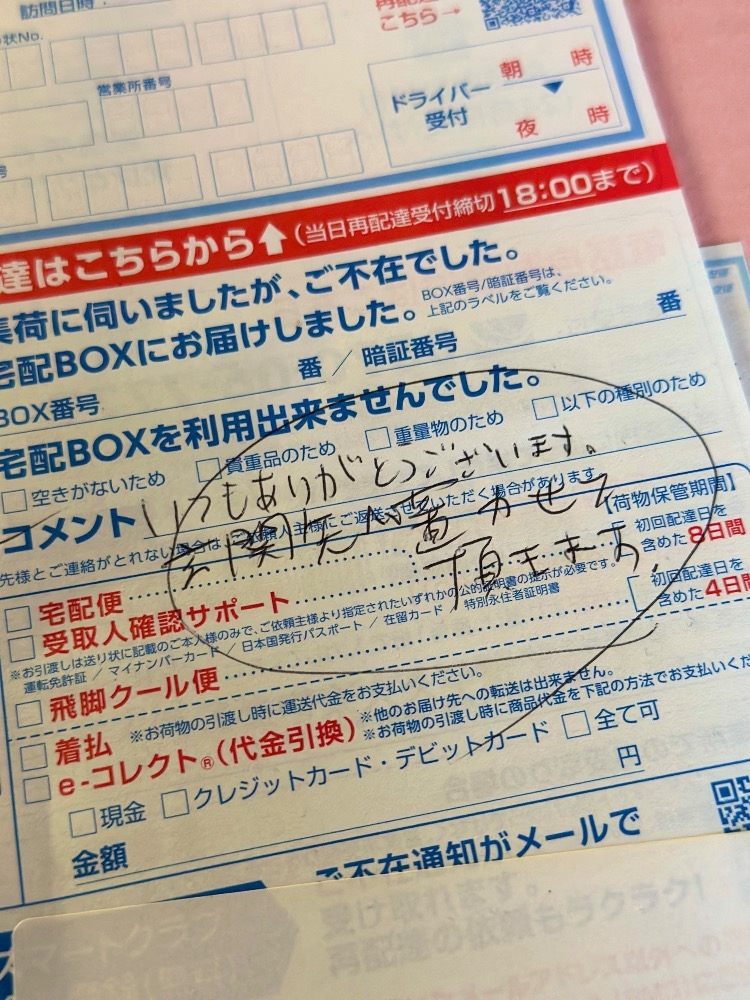 訪問日時
再配達
こちら→
状No.
営業所番号
ドライバー
受付
朝 時
夜 時
達はこちらから↑(当日再配達受付締切18:00まで)
集荷に伺いましたが、ご不在でした。
宅配BOXにお届けしました。
BOX番号/暗証番号は、
上記のラベルをご覧ください。
BOX番号 番 / 暗証番号 番
宅配BOXを利用出来ませんでした。
空きがないため 貴重品のため 重量物のため 以下の種別のため
コメント
いつもありがとうございます。
玄関先へ置かせて
頂きます。
先様とご連絡がとれない場合は、ご依頼人主様にご返送させていただく場合があります。
【荷物保管期間】
宅配便
初回配達日を
含めた8日間
受取人確認サポート
初回配達日を
含めた4日間
※お引渡しは送り状に記載のご本人様のみで、ご依頼主様より指定されたいずれかの公的証明書の提示が必要です。
運転免許証 / マイナンバーカード / 日本国発行パスポート / 在留カード / 特別永住者証明書
飛脚クール便
着払 ※お荷物の引渡し時に運送代金をお支払いください。
※他のお届け先への転送は出来ません。
e-コレクト®(代金引換) ※お荷物の引渡し時に商品代金を下記の方法でお支払いくだ
現金 クレジットカード・デビットカード 全て可
金額 円
ご不在通知がメールで
受け取れます。
再配達の依頼もラクラク!
スマートクラブ